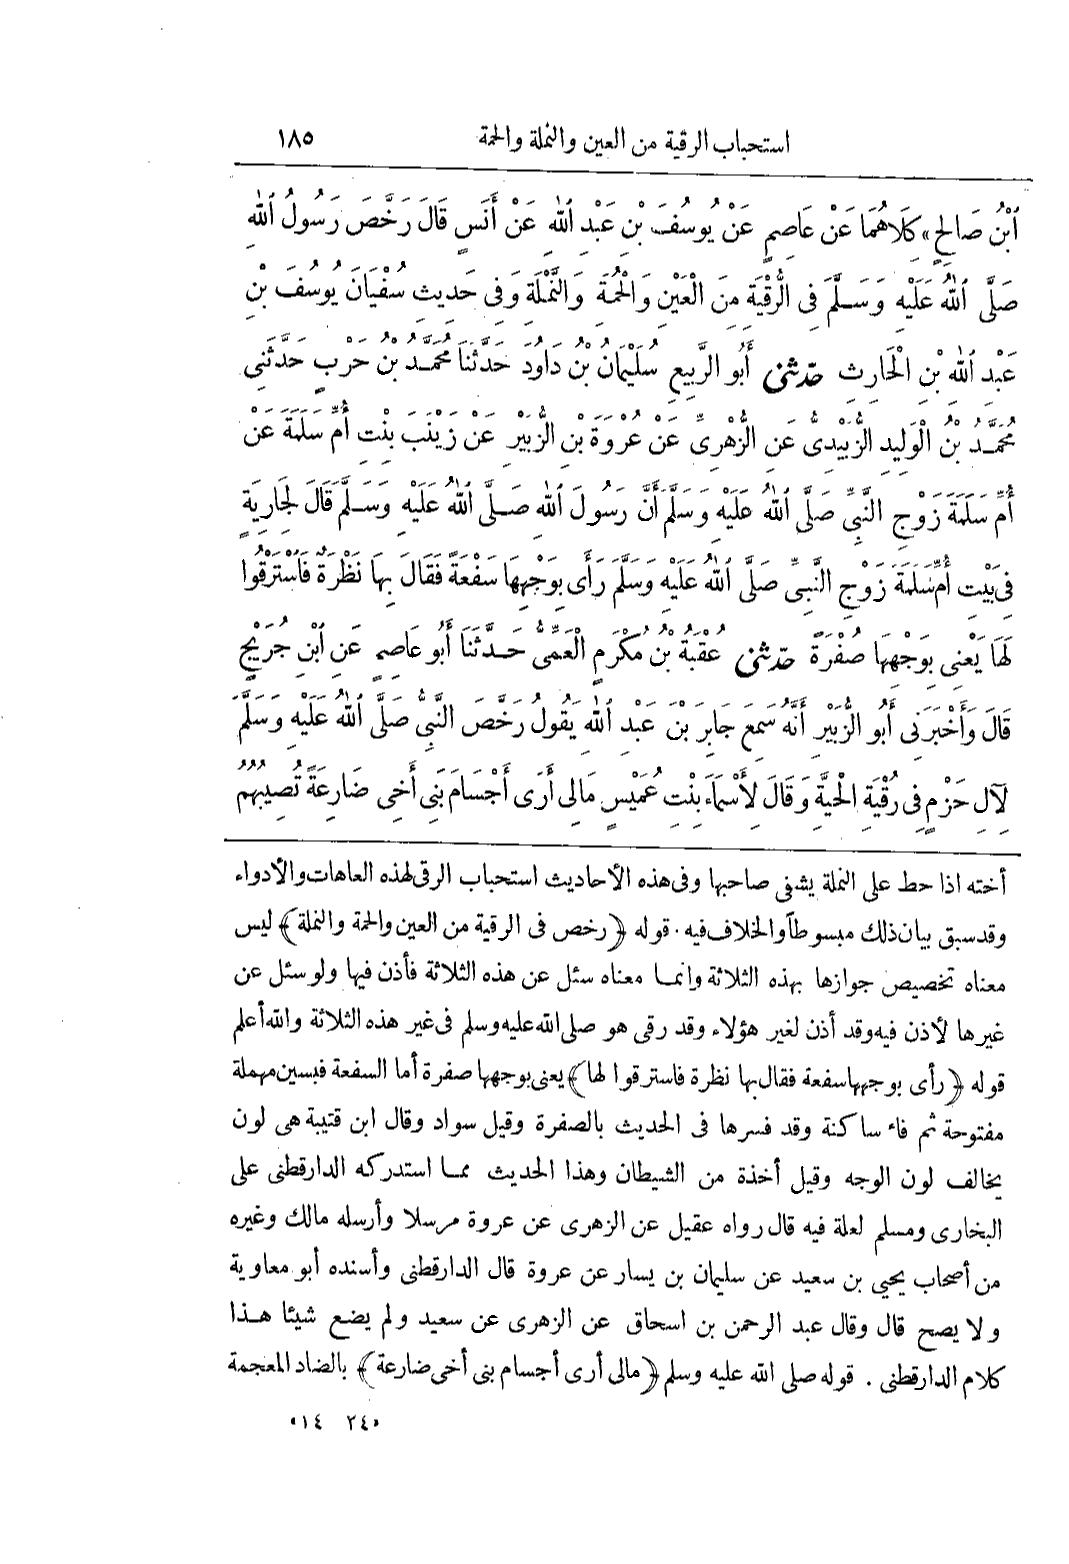 استحباب الرقية من العين والنملة والحمة ١٨٥
ٱبْنُ صَالِحٍ» كِلَاهُمَا عَنْ عَاصِمٍ عَنْ يُوسُفَ بْنِ عَبْدِ ٱللهِ عَنْ أَنَسٍ قَالَ رَخَّصَ رَسُولُ ٱللهِ
صَلَّى ٱللهُ عَلَيْهِ وَسَلَّمَ فِى الرُّقْيَةِ مِنَ الْعَيْنِ وَالْحُمَةِ وَالنَّمْلَةِ وَفِى حَدِيثِ سُفْيَانَ يُوسُفَ بْنِ
عَبْدِ ٱللهِ بْنِ الْحَارِثِ حدثنى أَبُو الرَّبِيعِ سُلَيْمَانُ بْنُ دَاوُدَ حَدَّثَنَا مُحَمَّدُ بْنُ حَرْبٍ حَدَّثَنِى
مُحَمَّدُ بْنُ الْوَلِيدِ الزُّبَيْدِىُّ عَنِ الزُّهْرِىِّ عَنْ عُرْوَةَ بْنِ الزُّبَيْرِ عَنْ زَيْنَبَ بِنْتِ أُمِّ سَلَمَةَ عَنْ
أُمِّ سَلَمَةَ زَوْجِ النَّبِىِّ صَلَّى ٱللهُ عَلَيْهِ وَسَلَّمَ أَنَّ رَسُولَ ٱللهِ صَلَّى ٱللهُ عَلَيْهِ وَسَلَّمَ قَالَ لِجَارِيَةٍ
فِى بَيْتِ أُمِّ سَلَمَةَ زَوْجِ النَّبِىِّ صَلَّى ٱللهُ عَلَيْهِ وَسَلَّمَ رَأَى بِوَجْهِهَا سَفْعَةً فَقَالَ بِهَا نَظْرَةٌ فَاسْتَرْقُوا
لَهَا يَعْنِى بِوَجْهِهَا صُفْرَةً حدثنى عُقْبَةُ بْنُ مُكْرَمٍ الْعَمِّىُّ حَدَّثَنَا أَبُو عَاصِمٍ عَنِ ٱبْنِ جُرَيْجٍ
قَالَ وَأَخْبَرَنِى أَبُو الزُّبَيْرِ أَنَّهُ سَمِعَ جَابِرَ بْنَ عَبْدِ ٱللهِ يَقُولُ رَخَّصَ النَّبِىُّ صَلَّى ٱللهُ عَلَيْهِ وَسَلَّمَ
لِآلِ حَزْمٍ فِى رُقْيَةِ الْحَيَّةِ وَقَالَ لِأَسْمَاءَ بِنْتِ عُمَيْسٍ مَالِى أَرَى أَجْسَامَ بَنِى أَخِى ضَارِعَةً تُصِيبُهُمُ
أخته اذا حط على النملة يشفى صاحبها وفى هذه الأحاديث استحباب الرقى لهذه العاهات والأدواء
وقد سبق بيان ذلك مبسوطاً والخلاف فيه . قوله ﴿رخص فى الرقية من العين والحمة والنملة﴾ ليس
معناه تخصيص جوازها بهذه الثلاثة وانما معناه سئل عن هذه الثلاثة فأذن فيها ولو سئل عن
غيرها لأذن فيه وقد أذن لغير هؤلاء وقد رقى هو صلى الله عليه وسلم فى غير هذه الثلاثة والله أعلم
قوله ﴿رأى بوجهها سفعة فقال بها نظرة فاسترقوا لها﴾ يعنى بوجهها صفرة أما السفعة فبسين مهملة
مفتوحة ثم فاء ساكنة وقد فسرها فى الحديث بالصفرة وقيل سواد وقال ابن قتيبة هى لون
يخالف لون الوجه وقيل أخذة من الشيطان وهذا الحديث مما استدركه الدارقطنى على
البخارى ومسلم لعلة فيه قال رواه عقيل عن الزهرى عن عروة مرسلا وأرسله مالك وغيره
من أصحاب يحيى بن سعيد عن سليمان بن يسار عن عروة قال الدارقطنى وأسنده أبو معاوية
ولا يصح قال وقال عبد الرحمن بن اسحاق عن الزهرى عن سعيد ولم يضع شيئا هذا
كلام الدارقطنى . قوله صلى الله عليه وسلم ﴿مالى أرى أجسام بنى أخى ضارعة﴾ بالضاد المعجمة
«٢٤ ١٤»